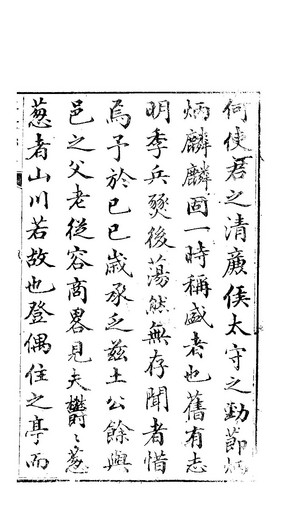 何使君之清廉侯太守之勤節炳
炳麟麟固一時稱盛者也舊有志
明季兵燹後蕩然無存聞者惜
焉予於己巳歲承乏茲土公餘與
邑之父老從容商畧見夫欝〻蔥
蔥者山川若故也登偶住之亭而